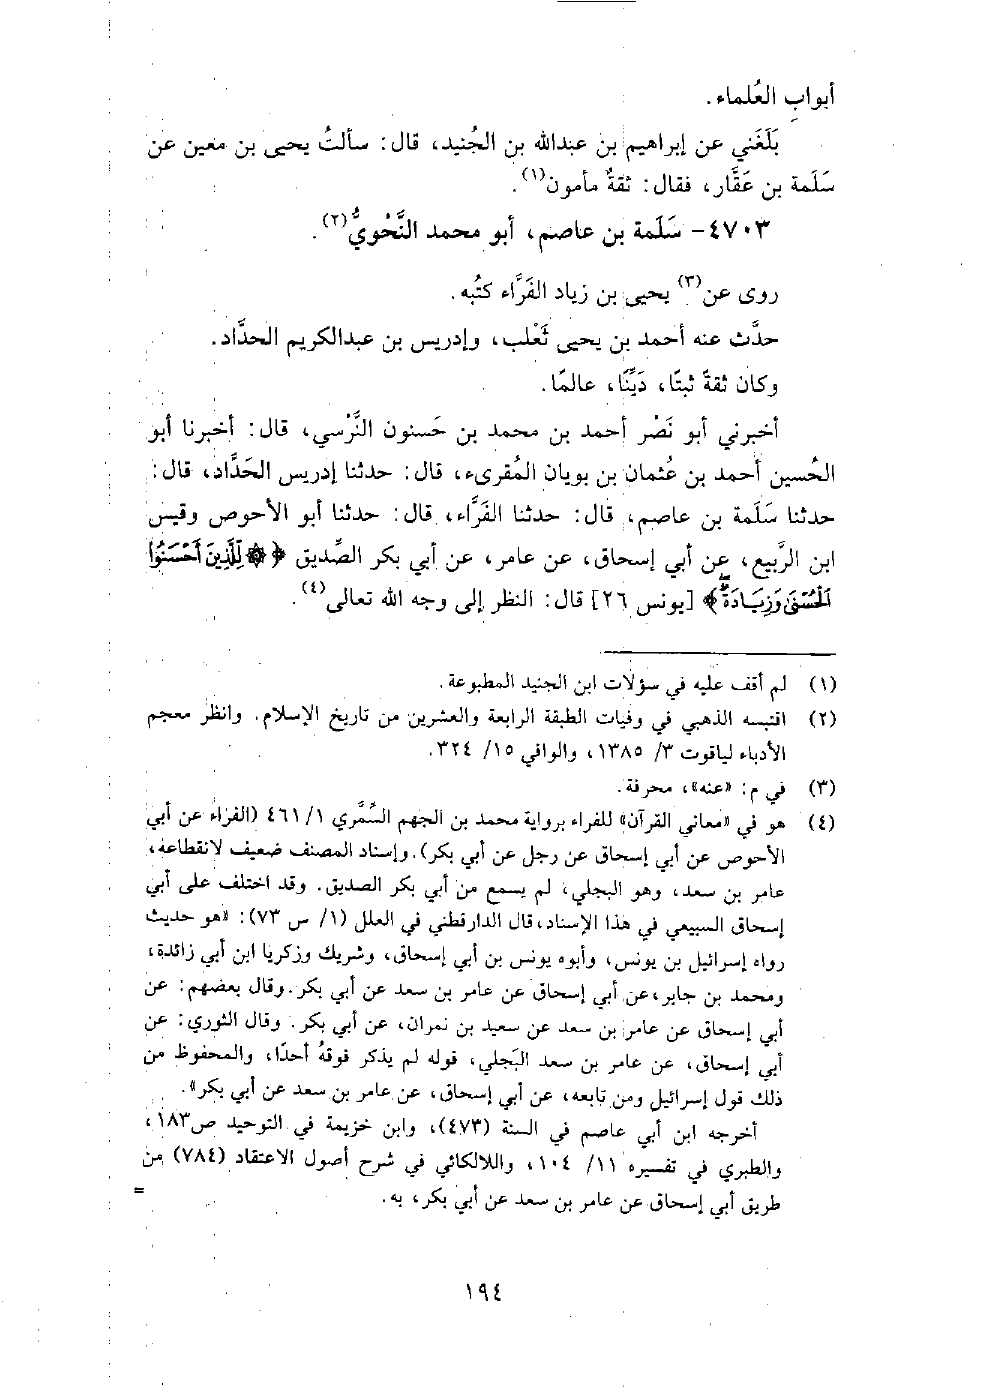 أبواب العُلماء.
بَلَغَني عن إبراهيم بن عبدالله بن الجُنيد، قال: سألتُ يحيى بن معين عن
سَلَمة بن عَقَّار، فقال: ثقةٌ مأمون(١).
٤٧٠٣- سَلَمة بن عاصم، أبو محمد النَّحْويُّ(٢).
روى عن(٣) يحيى بن زياد الفَرَّاء كتُبه.
حدَّث عنه أحمد بن يحيى ثَعْلب، وإدريس بن عبدالكريم الحدَّاد.
وكان ثقةً ثبتًا، دَيِّنًا، عالمًا.
أخبرني أبو نَصْر أحمد بن محمد بن حَسنون النَّرْسي، قال: أخبرنا أبو
الحُسين أحمد بن عُثمان بن بويان المُقرىء، قال: حدثنا إدريس الحَدَّاد، قال:
حدثنا سَلَمة بن عاصم، قال: حدثنا الفَرَّاء، قال: حدثنا أبو الأحوص وقيس
ابن الرَّبيع، عن أبي إسحاق، عن عامر، عن أبي بكر الصِّديق ﴿۞ لِّلَّذِينَ أَحْسَنُوا
الْحُسْنَىٰ وَزِيَادَةٌ ۖ﴾ [يونس ٢٦] قال: النظر إلى وجه الله تعالى(٤).
(١) لم أقف عليه في سؤلات ابن الجنيد المطبوعة.
(٢) اقتبسه الذهبي في وفيات الطبقة الرابعة والعشرين من تاريخ الإسلام. وانظر معجم
الأدباء لياقوت ٣/ ١٣٨٥، والوافي ١٥/ ٣٢٤.
(٣) في م: «عنه»، محرفة.
(٤) هو في «معاني القرآن» للفراء برواية محمد بن الجهم السِّمَّري ١/ ٤٦١ (الفراء عن أبي
الأحوص عن أبي إسحاق عن رجل عن أبي بكر). وإسناد المصنف ضعيف لانقطاعه،
عامر بن سعد، وهو البجلي، لم يسمع من أبي بكر الصديق. وقد اختلف على أبي
إسحاق السبيعي في هذا الإسناد، قال الدارقطني في العلل (١/ س ٧٣): «هو حديث
رواه إسرائيل بن يونس، وأبوه يونس بن أبي إسحاق، وشريك وزكريا ابن أبي زائدة،
ومحمد بن جابر، عن أبي إسحاق عن عامر بن سعد عن أبي بكر. وقال بعضهم: عن
أبي إسحاق عن عامر بن سعد عن سعيد بن نمران، عن أبي بكر. وقال الثوري: عن
أبي إسحاق، عن عامر بن سعد البَجلي، قوله لم يذكر فوقهُ أحدًا، والمحفوظ من
ذلك قول إسرائيل ومن تابعه، عن أبي إسحاق، عن عامر بن سعد عن أبي بكر».
أخرجه ابن أبي عاصم في السنة (٤٧٣)، وابن خزيمة في التوحيد ص١٨٣،
والطبري في تفسيره ١١/ ١٠٤، واللالكائي في شرح أصول الاعتقاد (٧٨٤) من
طريق أبي إسحاق عن عامر بن سعد عن أبي بكر، به. =
١٩٤